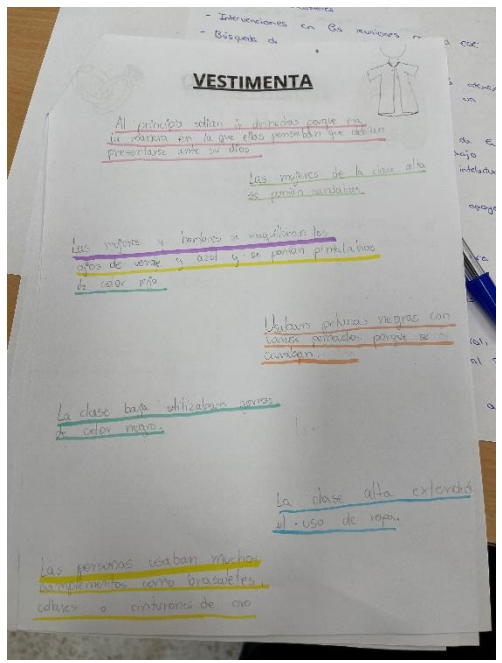 - Intervenciones en las reuniones
- Búsqueda de
VESTIMENTA
Al principio solían ir desnudos porque era
la manera en la que ellos pensaban que debían
presentarse ante su dios
Las mujeres de la clase alta
se ponían sandalias.
Las mujeres y hombres se maquillaban los
ojos de verde y azul y se ponían pintalabios
de color rojo
Usaban pelucas negras con
varios peinados porque se
La clase baja utilizaban gorros
de color negro.
La clase alta extendió
el uso de ropa.
Las personas usaban muchos
complementos como brasaletes,
collares o cinturones de oro